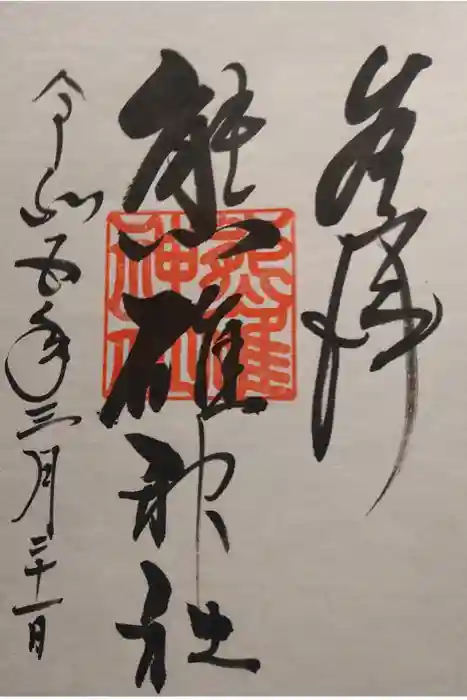 奉拝
熊碓神社
令和五年三月三十一日
熊碓
神社